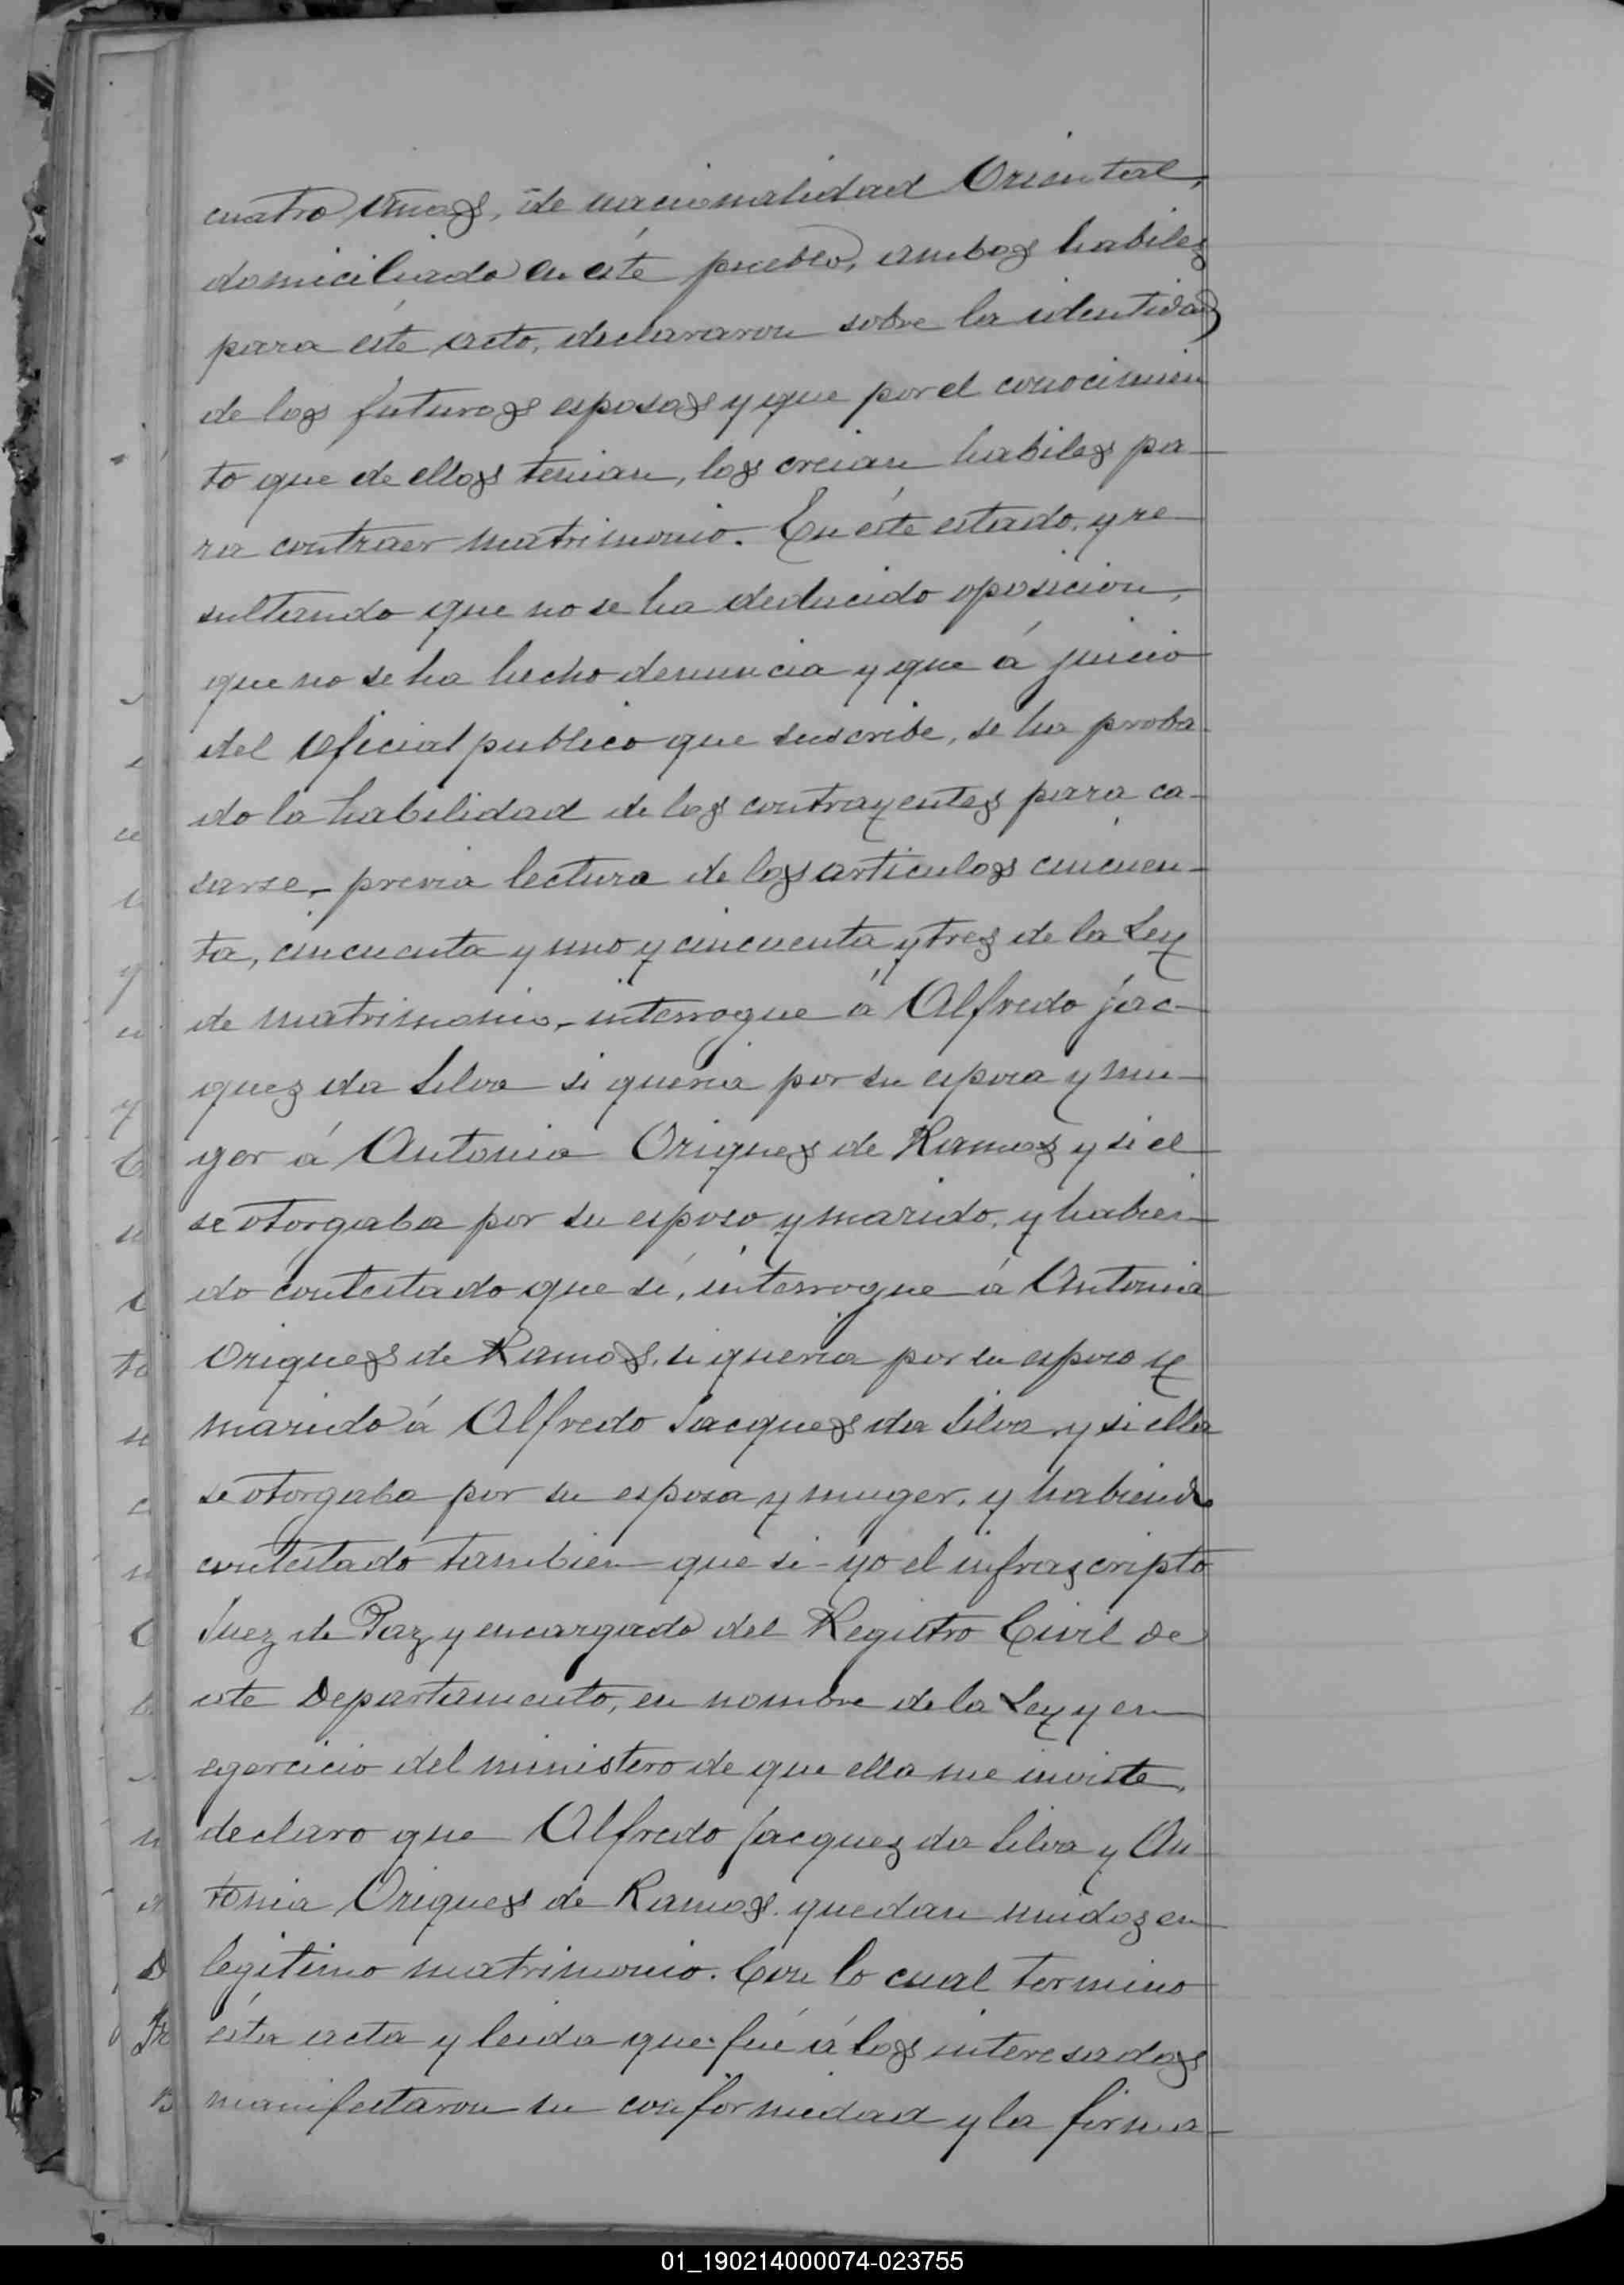 cuatro años, de nacionalidad Oriental,
domiciliado en éste pueblo, ambos habiles
para éste acto, declararon sobre la identidad
de los futuros esposos y que por el conocimien
to que de ellos tenian, los creian habiles pa-
ra contraer matrimonio. En éste estado, y re-
sultando que no se ha deducido oposicion,
que no se ha hecho denuncia y que á juicio
del Oficial publico que suscribe, se ha proba-
do la habilidad de los contrayentes para ca-
sarse, previa lectura de los articulos cincuen-
ta, cincuenta y uno y cincuenta y tres de la Ley
de matrimonio, interrogue á Alfredo Jac-
quez da Silva si queria por su esposa y mu-
ger á Antonia Oriques de Ramos y si el
se otorgaba por su esposo y marido, y habien-
do contestado que sí, interrogue á Antonia
Oriques de Ramos, si queria por su esposo y
marido á Alfredo Jacques da Silva y si ella
se otorgaba por su esposa y muger, y habiendo
contestado tambien que si - yo el infrascripto
Juez de Paz y encargado del Registro Civil de
este Departamento, en nombre de la Ley y en
egercicio del ministero de que ella me inviste,
declaro que Alfredo Jacquez da Silva y An
tonia Oriques de Ramos quedan unidos en
legitimo matrimonio. Con lo cual termino
ésta acta y leida que fué á los interesados
manifestaron su conformidad y la firma-
01_190214000074-023755